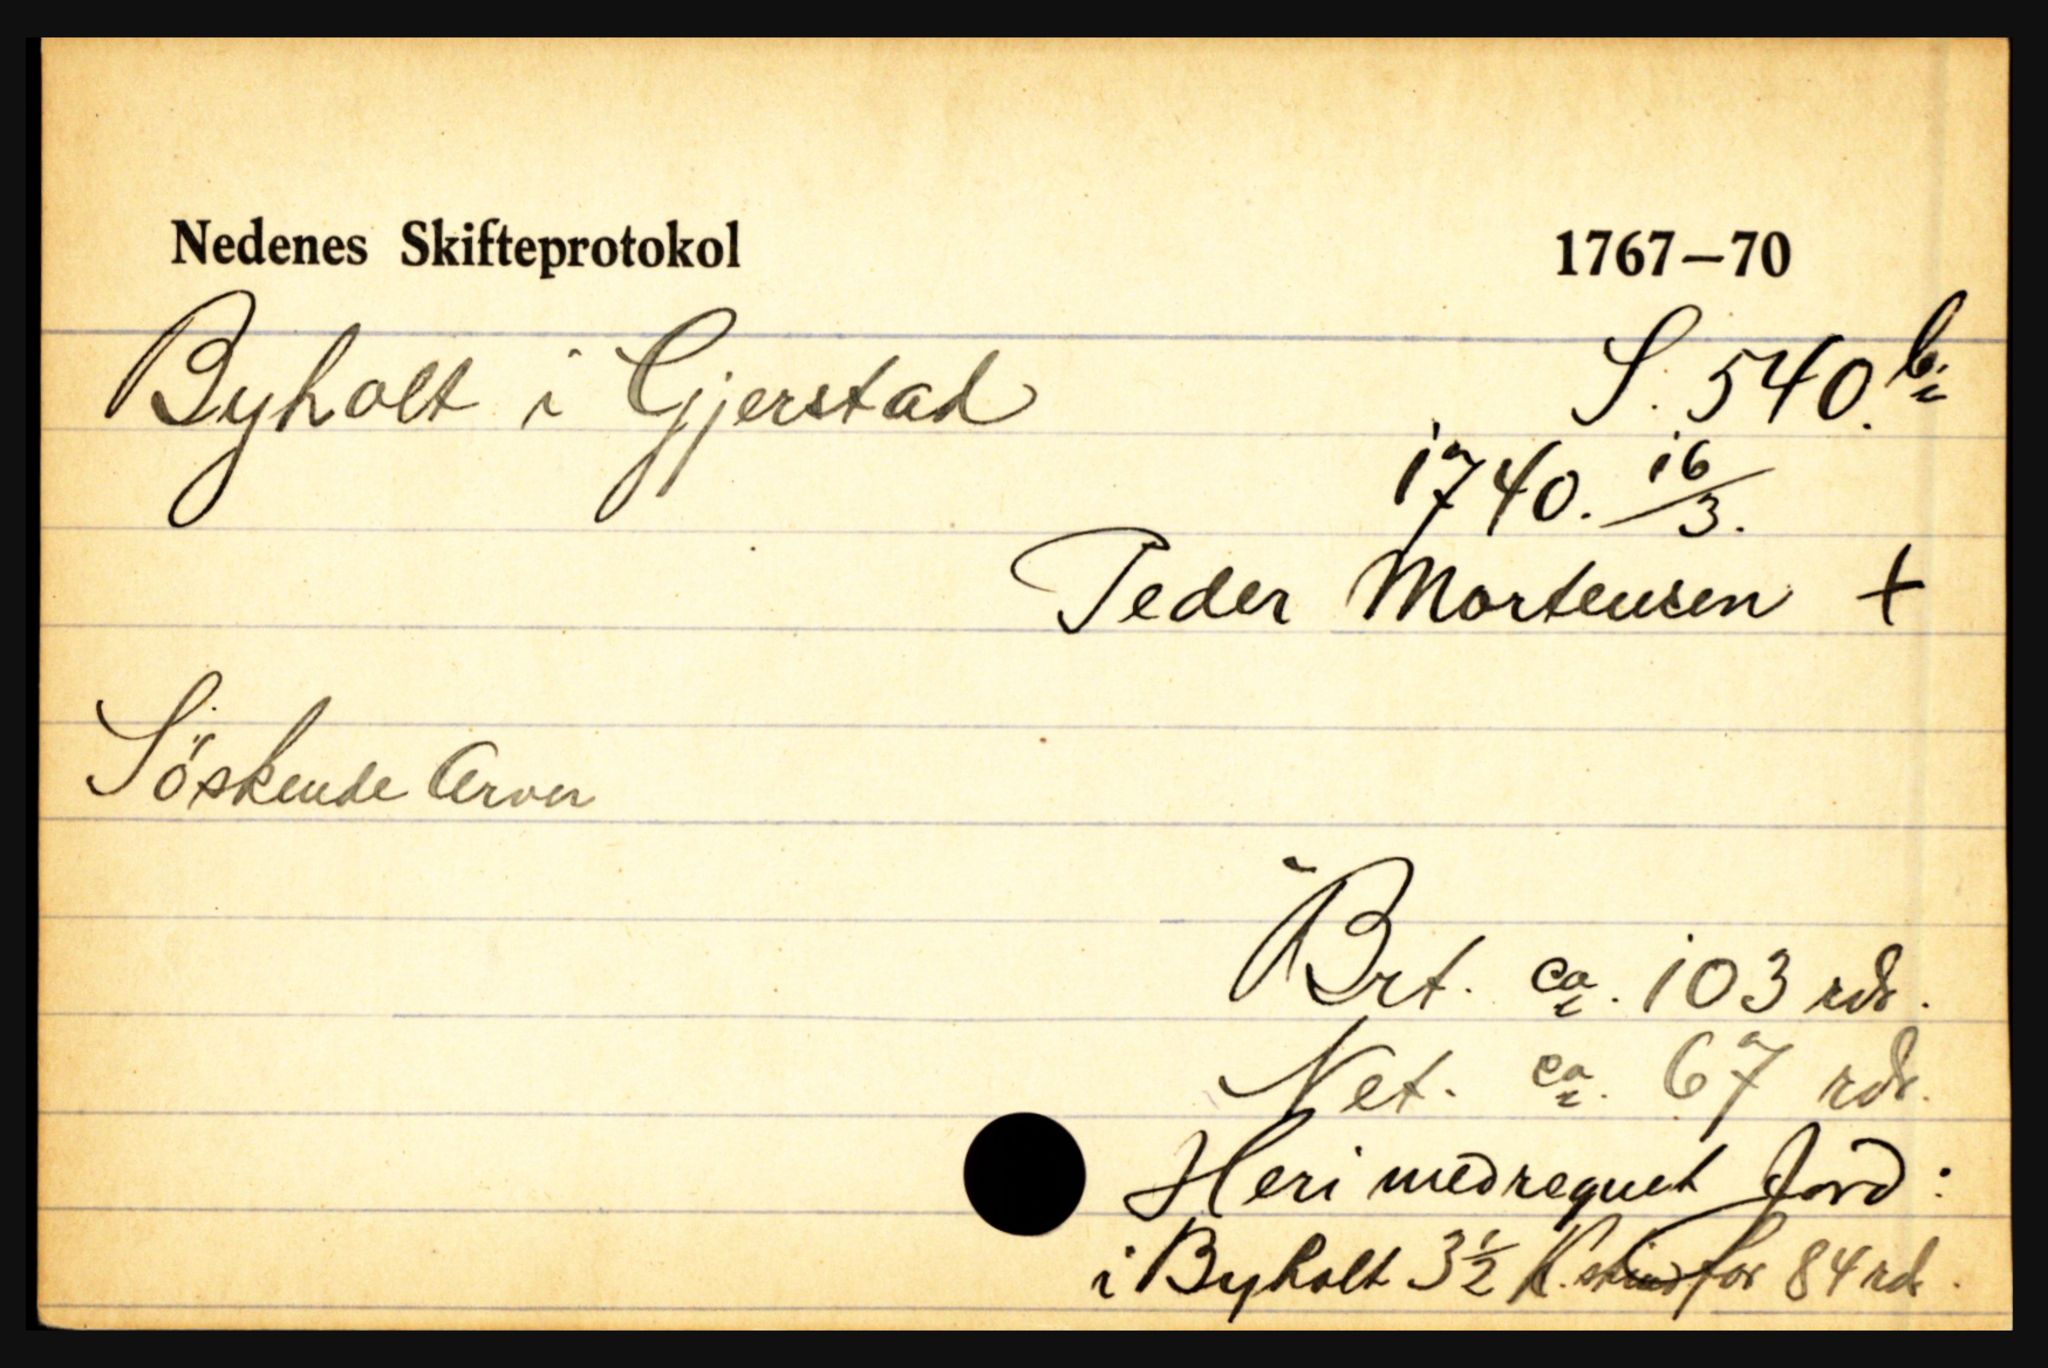 Nedenes Skifteprotokol 1767–70
Byholt i Gjerstad S. 540.b.
1740. 16/3.
Peder Mortensen +
Söskende Arver
Brt. ca. 103 rdr.
Net. ca. 67 rdr.
Heri medregnet Jord:
i Byholt 3 1/2 K. skind for 84 rdr.